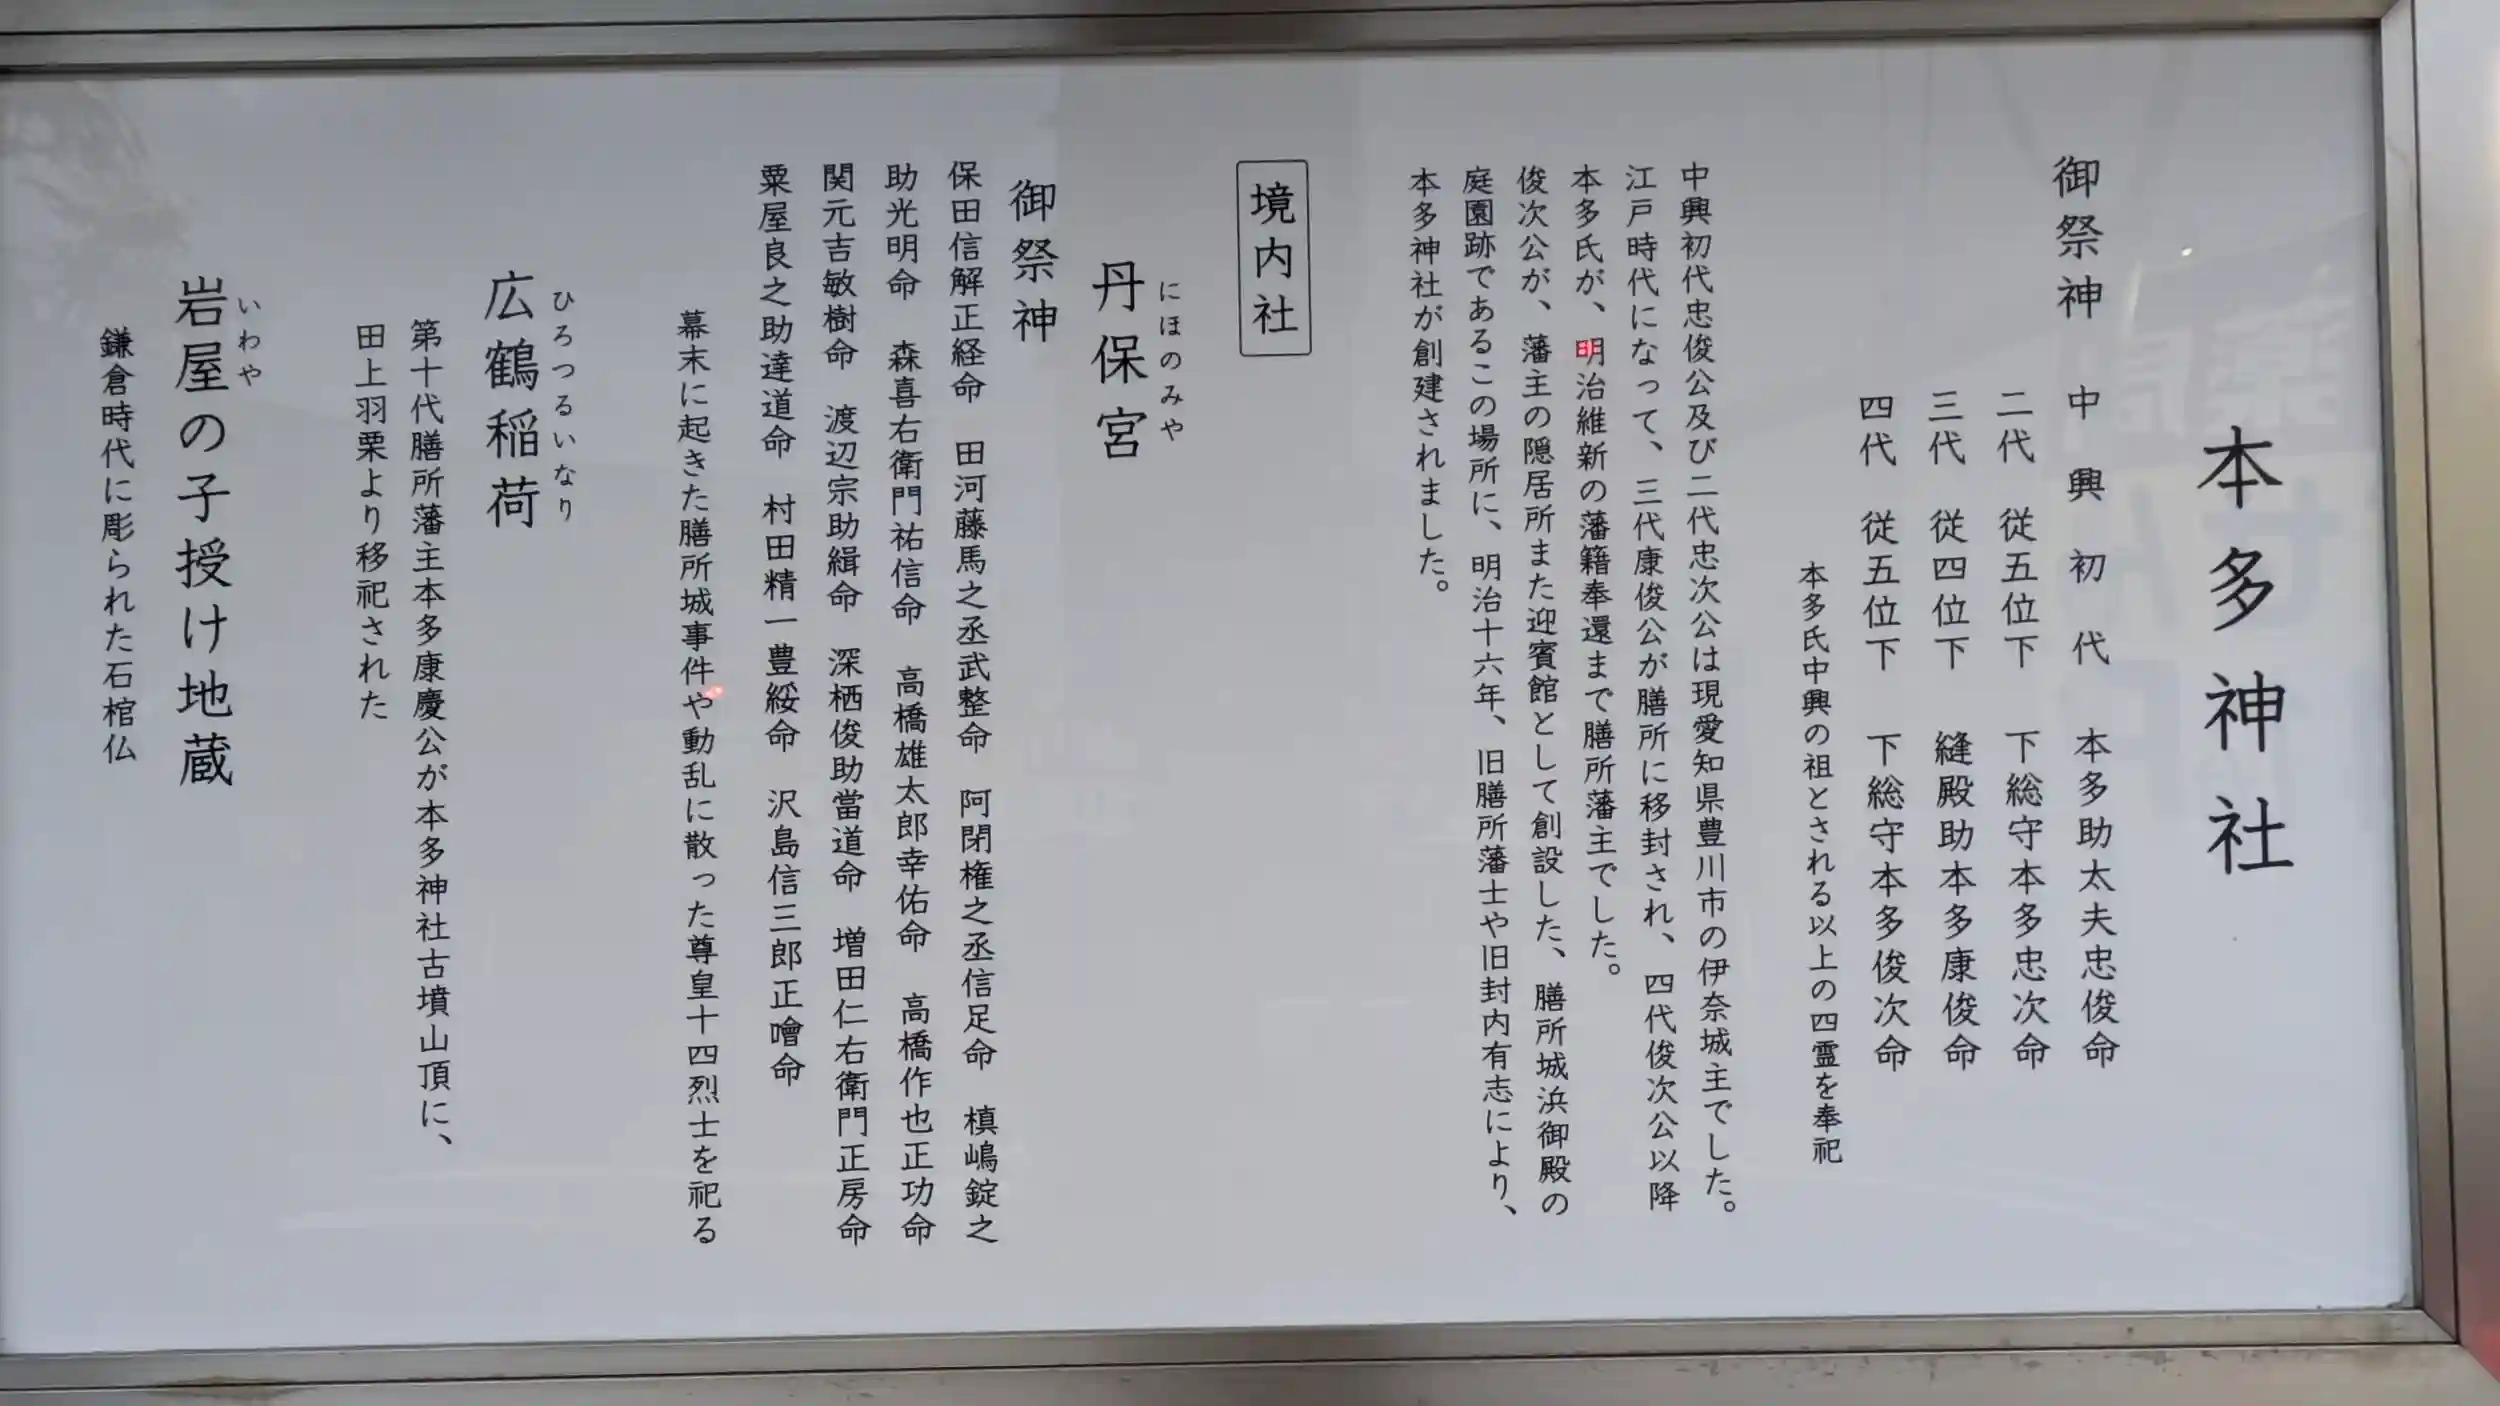 本多神社
御祭神　中興初代　本多助太夫忠俊命
二代　従五位下　下総守本多忠次命
三代　従四位下　縫殿助本多康俊命
四代　従五位下　下総守本多俊次命
本多氏中興の祖とされる以上の四霊を奉祀
中興初代忠俊公及び二代忠次公は現愛知県豊川市の伊奈城主でした。
江戸時代になって、三代康俊公が膳所に移封され、四代俊次公以降
本多氏が、明治維新の藩籍奉還まで膳所藩主でした。
俊次公が、藩主の隠居所また迎賓館として創設した、膳所城浜御殿の
庭園跡であるこの場所に、明治十六年、旧膳所藩士や旧封内有志により、
本多神社が創建されました。
境内社
にほのみや
丹保宮
御祭神
保田信解正経命　田河藤馬之丞武整命　阿閉権之丞信足命　槙嶋錠之
助光明命　森喜右衛門祐信命　高橋雄太郎幸佑命　高橋作也正功命
関元吉敏樹命　渡辺宗助緝命　深栖俊助當道命　増田仁右衛門正房命
粟屋良之助達道命　村田精一豊綏命　沢島信三郎正噲命
幕末に起きた膳所城事件や動乱に散った尊皇十四烈士を祀る
ひろつるいなり
広鶴稲荷
第十代膳所藩主本多康慶公が本多神社古墳山頂に、
田上羽栗より移祀された
いわや
岩屋の子授け地蔵
鎌倉時代に彫られた石棺仏